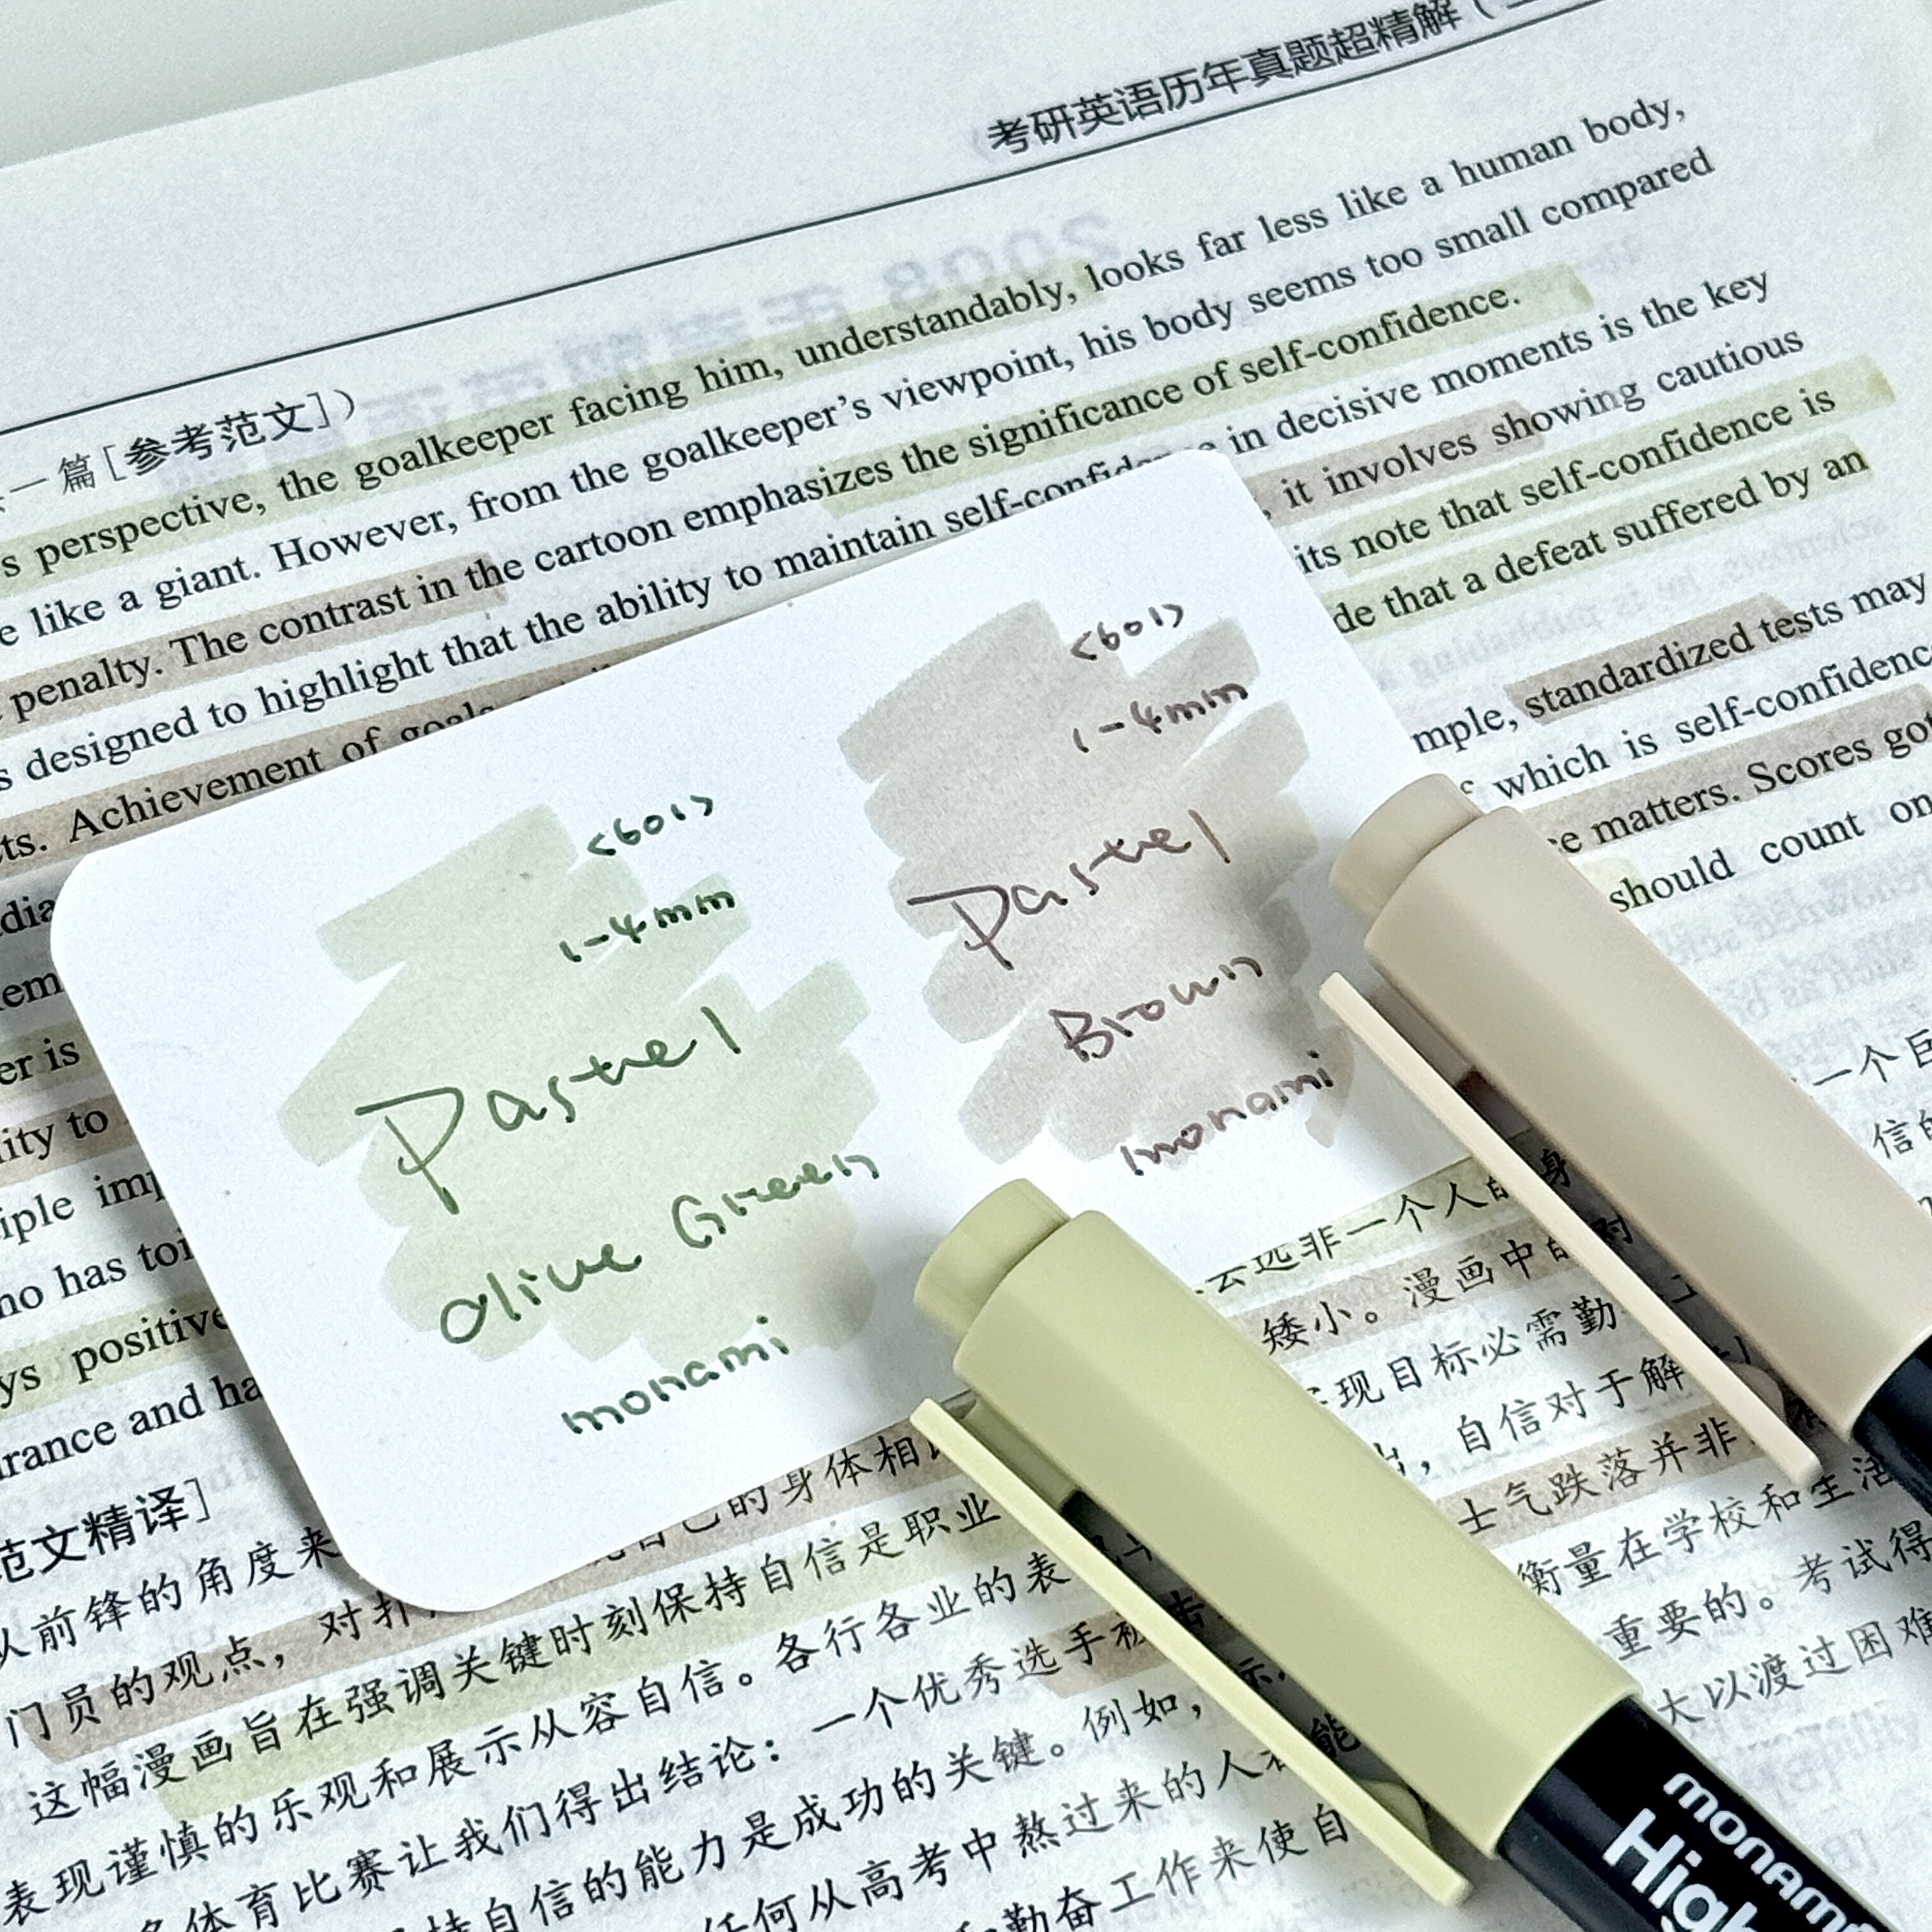 考研英语历年真题超精解(二
一篇[参考范文])
s perspective, the goalkeeper facing him, understandably, looks far less like a human body,
e like a giant. However, from the goalkeeper's viewpoint, his body seems too small compared
penalty. The contrast in the cartoon emphasizes the significance of self-confidence.
s designed to highlight that the ability to maintain self-confidence in decisive moments is the key
ts. Achievement of goals it involves showing cautious
its note that self-confidence is
de that a defeat suffered by an
mple, standardized tests may
which is self-confidence
matters. Scores got
should count on
er is
ity to
iple imp
no has toi
ys positive
rance and ha
<601>
1-4mm
Pastel
Olive Green
monami
<601>
1-4mm
Pastel
Brown
monami
一个巨
非一个人的身
矮小。漫画中的对
现目标必需勤
自信对于解
士气跌落并非
衡量在学校和生活
重要的。考试得
大以渡过困难
范文精译]
从前锋的角度来
门员的观点,对扑 自己的身体相比
这幅漫画旨在强调关键时刻保持自信是职业
表现谨慎的乐观和展示从容自信。各行各业的表
体育比赛让我们得出结论:一个优秀选手被击
持自信的能力是成功的关键。例如,
任何从高考中熬过来的人都能
勤奋工作来使自
monami
High